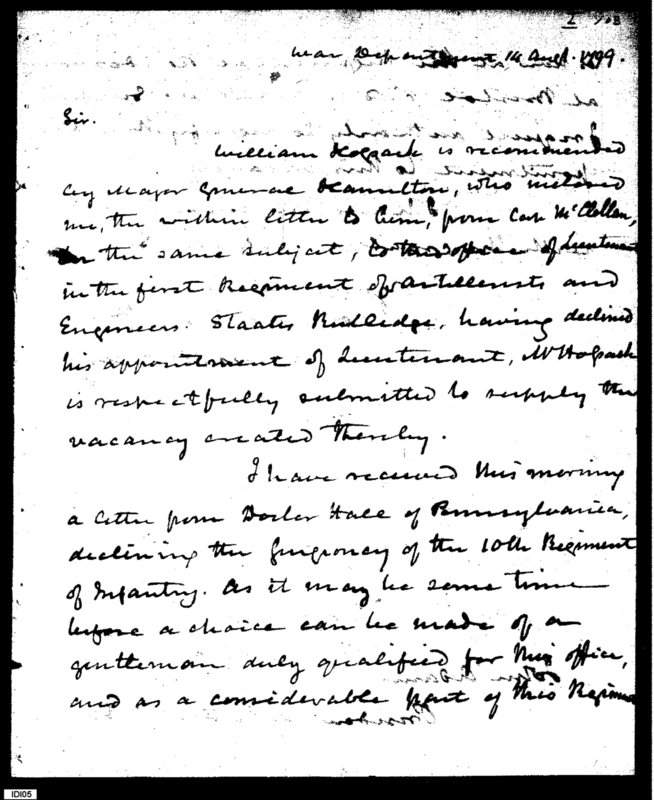 War Department 14 Augt. 1799.
Sir.
William Hogsack is recommended
by Major General Hamilton, who inclosed
me, the within letter to him, from Cap McClellan,
on the same subject, to the office of Lieutenant
in the first Regiment of Artillerists and
Engineers. Staats Rutledge, having declined
his appointment of Lieutenant, Mr Hogsack
is respectfully submitted to supply the
vacancy created thereby.
I have received this morning
a letter from Doctor Hall of Pennsylvania,
declining the Surgeoncy of the 10th Regiment
of Infantry. As it may be some time
before a choice can be made of a
gentleman duly qualified for this office,
and as a considerable part of this Regiment
IDI05